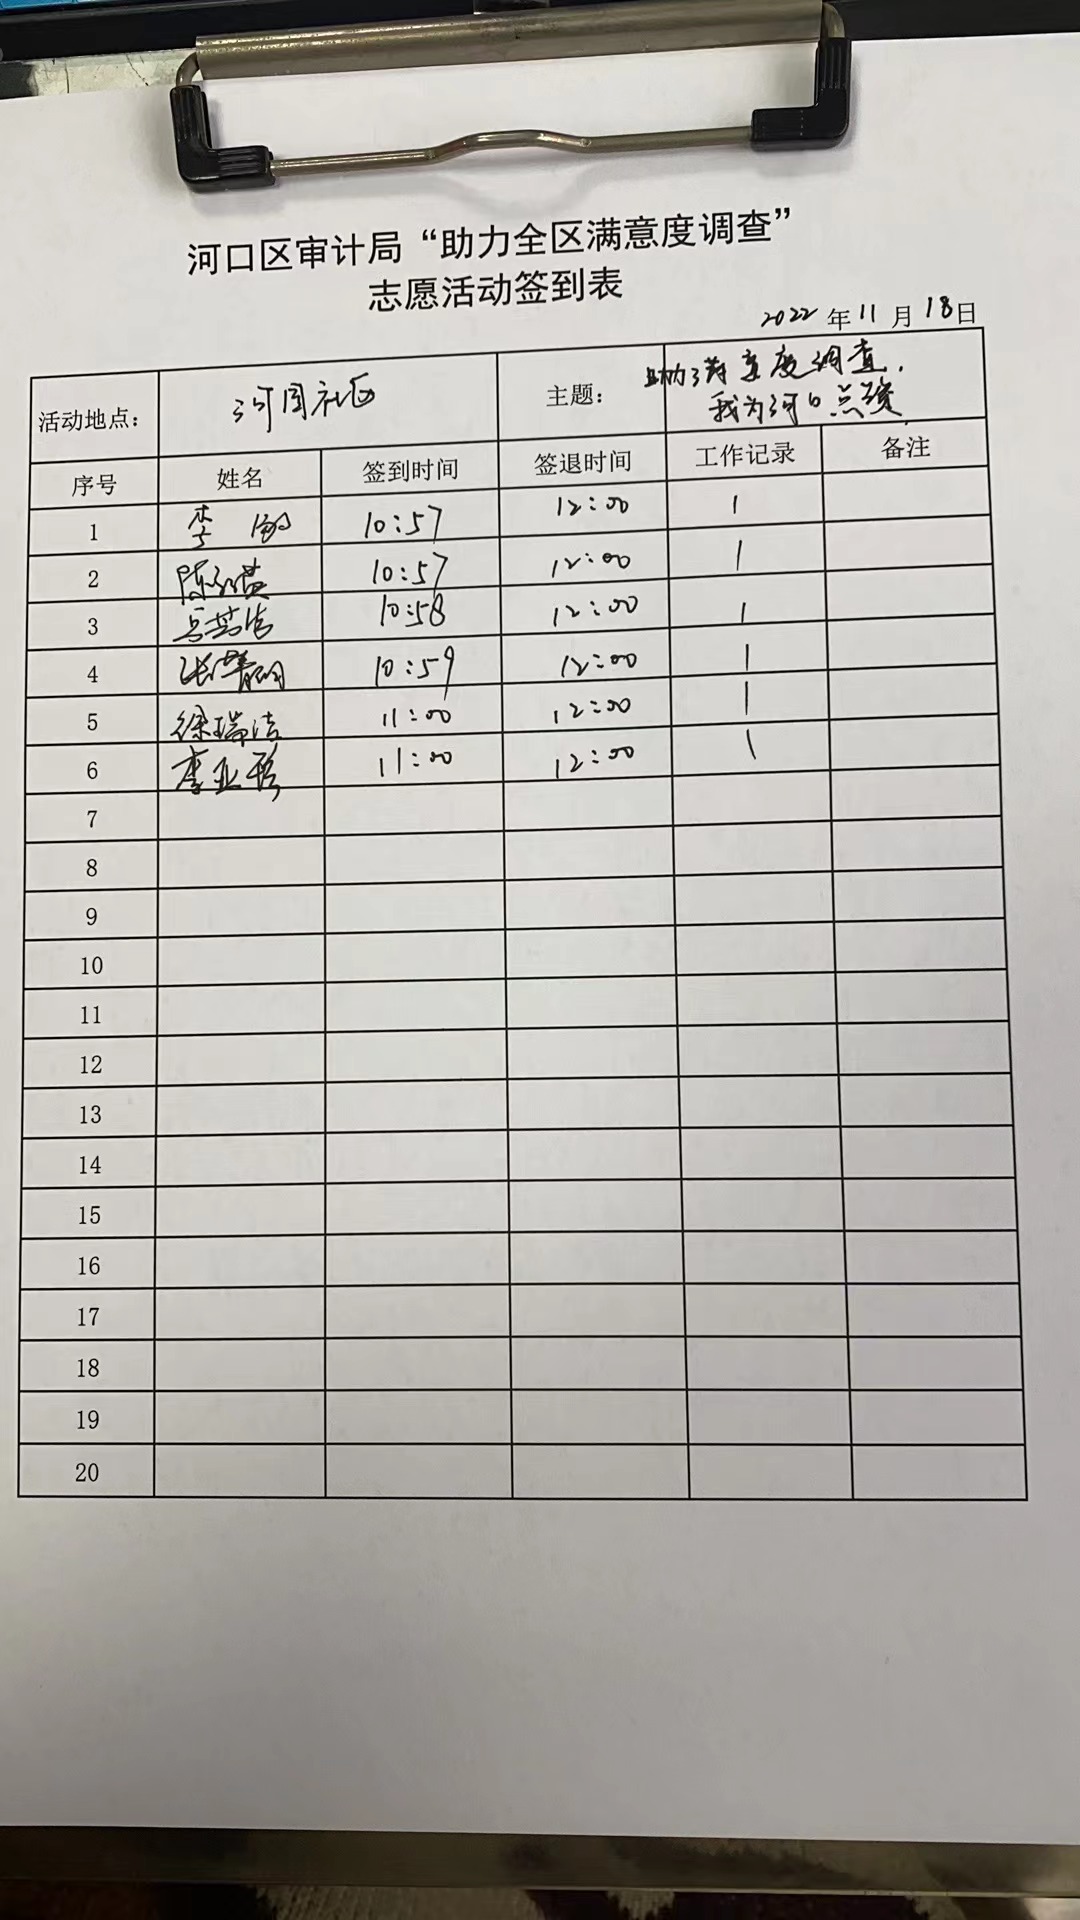 河口区审计局“助力全区满意度调查”
志愿活动签到表
2022年11月18日
活动地点： 河园社区 主题： 助力满意度调查，
我为河口点赞
序号 姓名 签到时间 签退时间 工作记录 备注
1 李敏 10:57 12:00 1
2 10:57 12:00 1
3 10:58 12:00 1
4 10:59 12:00 1
5 徐瑞洁 11:00 12:00 1
6 李亚 11:00 12:00 1
7
8
9
10
11
12
13
14
15
16
17
18
19
20